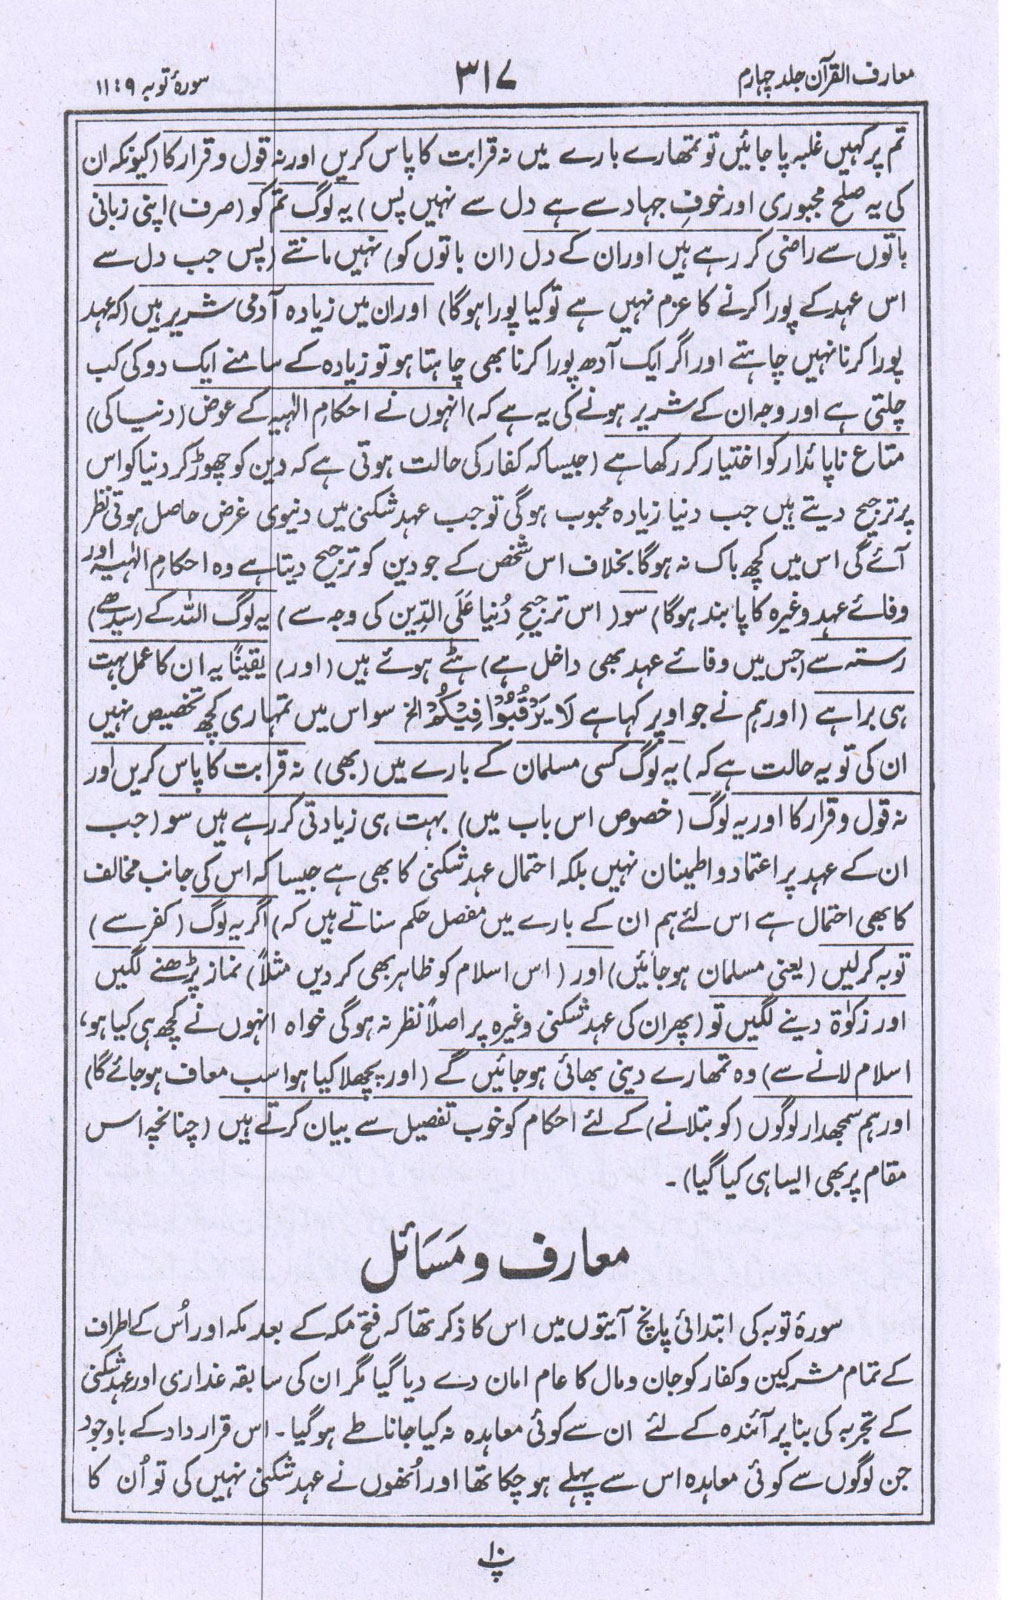 معارف القرآن جلد چہارم
۳۱۷
سورۂ توبہ ۹ : ۱۱
تم پر کہیں غلبہ پاجائیں تو تمھارے بارے میں نہ قرابت کا پاس کریں اور نہ قول و قرار کا (کیونکہ ان
کی یہ صلح مجبوری اور خوفِ جہاد سے ہے دل سے نہیں پس) یہ لوگ تم کو (صرف) اپنی زبانی
باتوں سے راضی کر رہے ہیں اور ان کے دل (ان باتوں کو) نہیں مانتے (پس جب دل سے
اس عہد کے پورا کرنے کا عزم نہیں ہے تو کیا پورا ہوگا) اور ان میں زیادہ آدمی شریر ہیں (کہ عہد
پورا کرنا نہیں چاہتے اور اگر ایک آدھ پورا کرنا بھی چاہتا ہو تو زیادہ کے سامنے ایک دو کی کب
چلتی ہے اور وجہ ان کے شریر ہونے کی یہ ہے کہ) انہوں نے احکامِ الٰہیہ کے عوض (دنیا کی)
متاع ناپائدار کو اختیار کر رکھا ہے (جیسا کہ کفار کی حالت ہوتی ہے کہ دین کو چھوڑ کر دنیا کو اس
پر ترجیح دیتے ہیں جب دنیا زیادہ محبوب ہوگی تو جب عہد شکنی میں دنیوی غرض حاصل ہوتی نظر
آئے گی اس میں کچھ باک نہ ہوگا بخلاف اس شخص کے جو دین کو ترجیح دیتا ہے وہ احکامِ الٰہیہ اور
وفائے عہد وغیرہ کا پابند ہوگا) سو (اس ترجیحِ دُنیا عَلَی الدِّین کی وجہ سے) یہ لوگ اللہ کے (سیدھے)
رستہ سے (جس میں وفائے عہد بھی داخل ہے) ہٹے ہوئے ہیں (اور) یقیناً یہ ان کا عمل بہت
ہی برا ہے (اور ہم نے جو اوپر کہا ہے لَا یَرْقُبُوْا فِیْکُمْ الخ سو اس میں تمہاری کچھ تخصیص نہیں
ان کی تو یہ حالت ہے کہ) یہ لوگ کسی مسلمان کے بارے میں (بھی) نہ قرابت کا پاس کریں اور
نہ قول و قرار کا اور یہ لوگ (خصوص اس باب میں) بہت ہی زیادتی کر رہے ہیں سو (جب
ان کے عہد پر اعتماد و اطمینان نہیں بلکہ احتمال عہد شکنی کا بھی ہے جیسا کہ اس کی جانب مخالف
کا بھی احتمال ہے اس لئے ہم ان کے بارے میں مفصل حکم سناتے ہیں کہ) اگر یہ لوگ (کفر سے)
توبہ کرلیں (یعنی مسلمان ہوجائیں) اور (اس اسلام کو ظاہر بھی کردیں مثلاً) نماز پڑھنے لگیں
اور زکوٰۃ دینے لگیں تو (پھر ان کی عہد شکنی وغیرہ پر اصلاً نظر نہ ہوگی خواہ انہوں نے کچھ ہی کیا ہو،
اسلام لانے سے) وہ تمھارے دینی بھائی ہوجائیں گے (اور پچھلا کیا ہوا سب معاف ہوجائے گا)
اور ہم سمجھدار لوگوں (کو بتلانے) کے لئے احکام کو خوب تفصیل سے بیان کرتے ہیں (چنانچہ اس
مقام پر بھی ایسا ہی کیا گیا)۔
معارف و مَسَائل
سورۂ توبہ کی ابتدائی پانچ آیتوں میں اس کا ذکر تھا کہ فتح مکہ کے بعد مکہ اور اُس کے اطراف
کے تمام مشرکین و کفار کو جان و مال کا عام امان دے دیا گیا مگر ان کی سابقہ غداری اور عہد شکنی
کے تجربہ کی بنا پر آئندہ کے لئے ان سے کوئی معاہدہ نہ کیا جانا طے ہوگیا۔ اس قرارداد کے باوجود
جن لوگوں سے کوئی معاہدہ اس سے پہلے ہوچکا تھا اور اُنھوں نے عہد شکنی نہیں کی تو اُن کا
پ۱۰